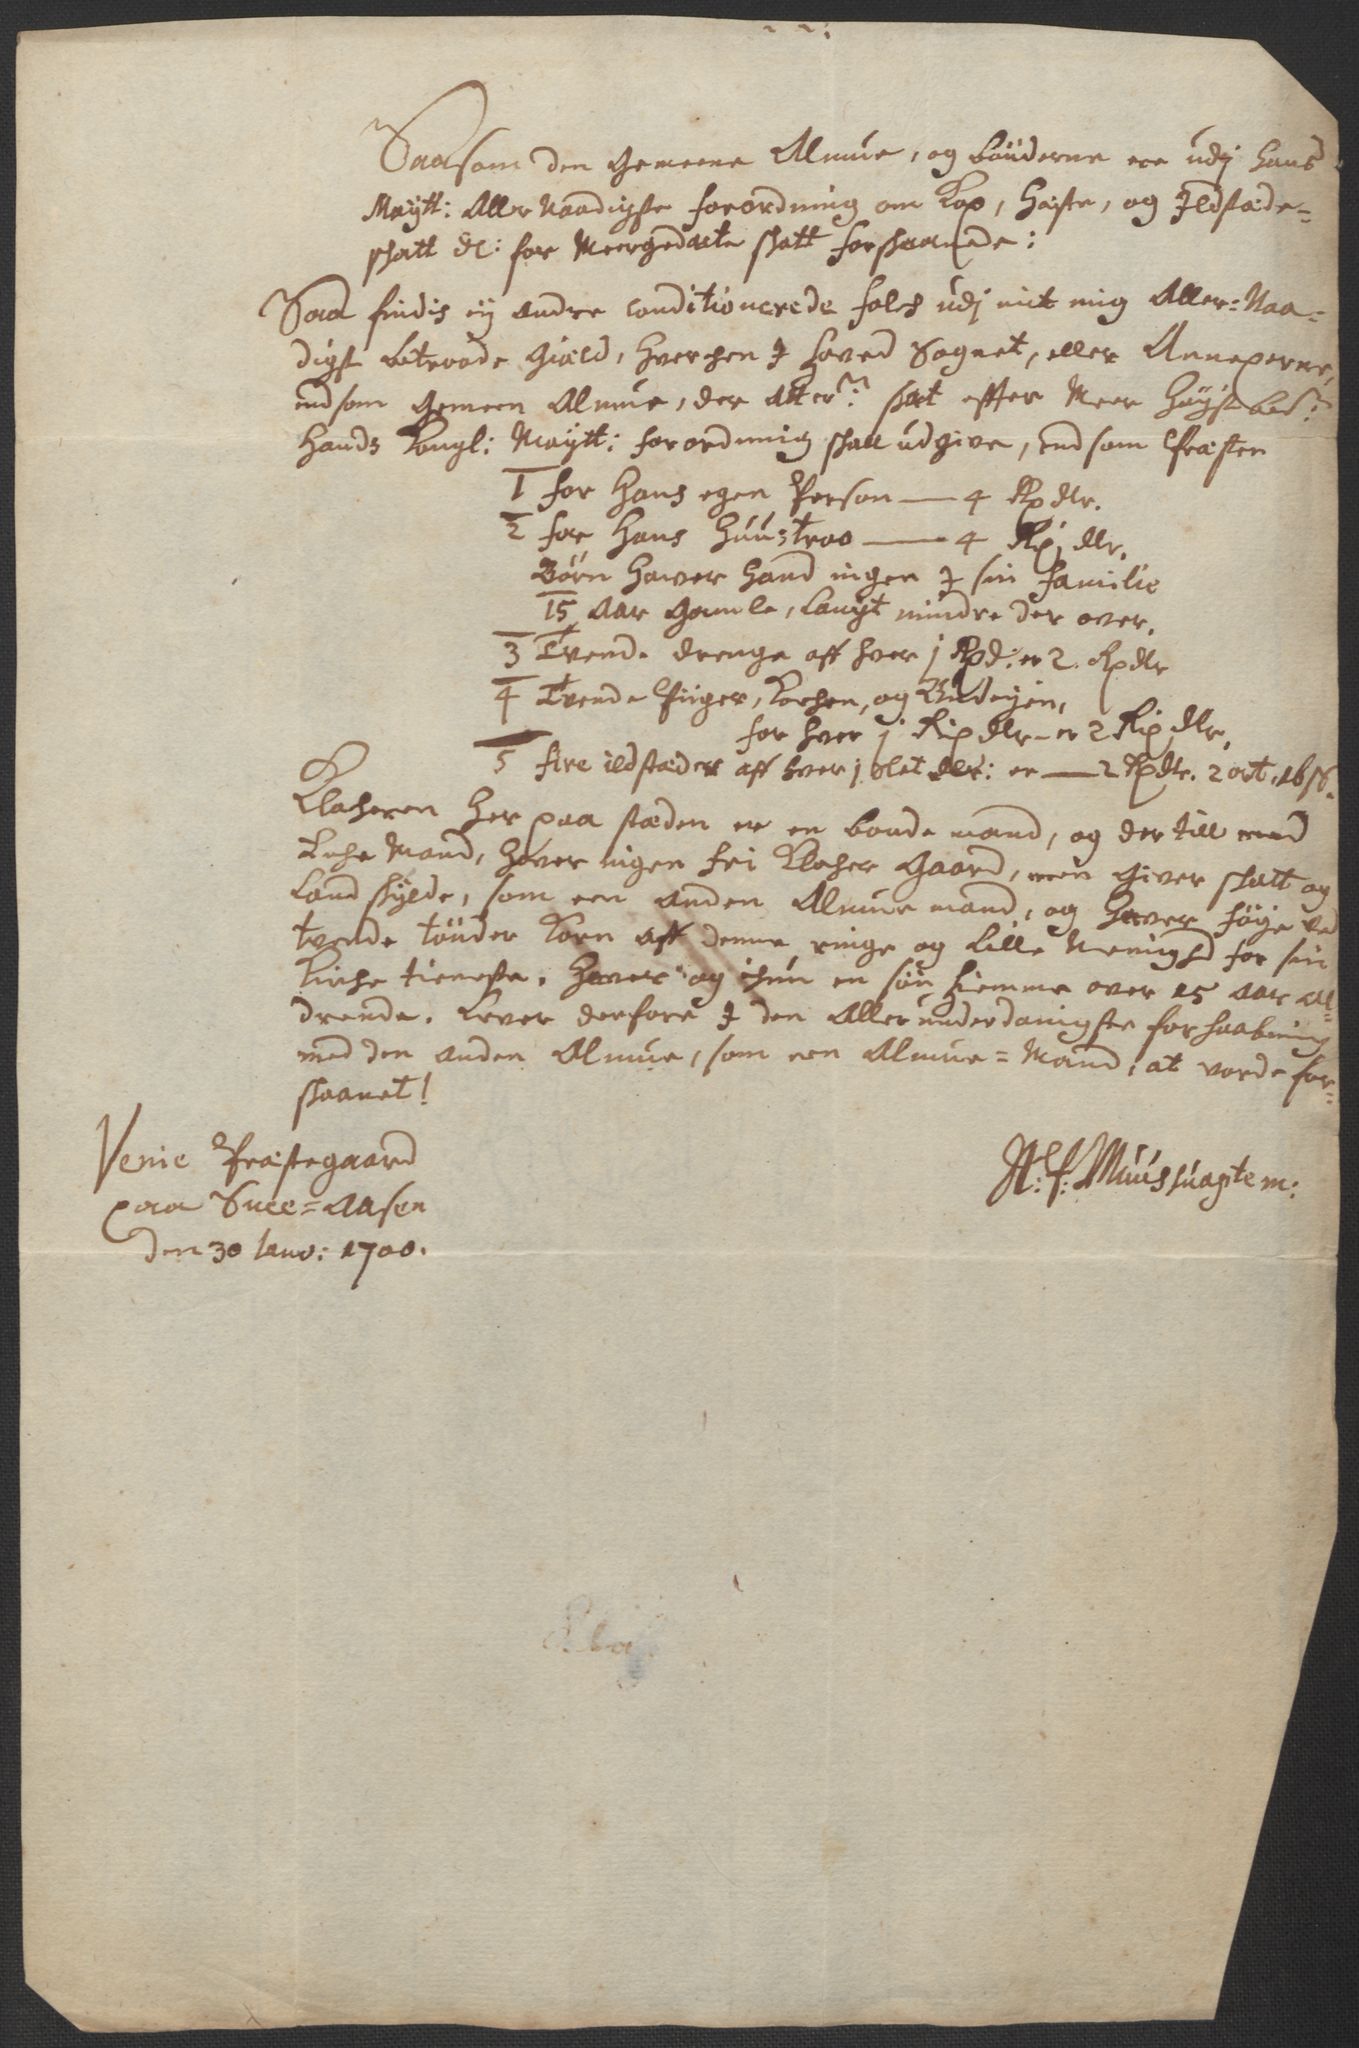 Saasom den Gemeene Almue, og bönderne ere udj Hans
Maytt: Aller Naadigste forordning om Kop, Hæste, og Ildstæde=
skatt &c: for Meergedacte skatt forskaanede:
Saa findis ej andre conditionerede folch udj mit mig Aller=Naa=
digst betroede Gield, hverchen I Hoved Sognet, eller Annexerne,
end som Gemeen Almue, der skat effter Meer Höyst bete:
Hands Kongl: Maytt: forordning skall udgive, end som Præsten
1 for Hans egen Person — 4 Rpdlr.
2 for Hans Huustroe — 4 Rp: dlr.
Börn Haver Hand ingen I sin familie
15 Aar Gamle, langt mindre der over.
3 Tvende drenge aff hver j Rpd: er 2. Rpdlr
4 Tvende Piiger, Kochen, og Budeyen,
for hver j Rix dlr — er 2 Rix dlr,
5 fire ildstæder aff hver j slet dlr: er — 2 Rpdlr. 2 ort. 16 sh.
Klocheren Her paa stæden er en bonde mand, og der till med
Enke Mand, Haver ingen fri Klocher Gaard, men giver skatt og
Land skylde, som een anden Almue mand, og Haver föye ved
tvende tönder Korn aff denne ringe og lille Menighd for sin
Kirche tieneste. Haver og ichun en sön Hiemme over 15 Aar Al=
drende. Lever derfore I den Aller underdanigste forhaabning
med den anden Almue, som een Almue=Mand, at vorde for=
skaanet!
Venie Præstegaard
paa Snee=Aasen
den 30 Janv: 1700.
A: P: Muus